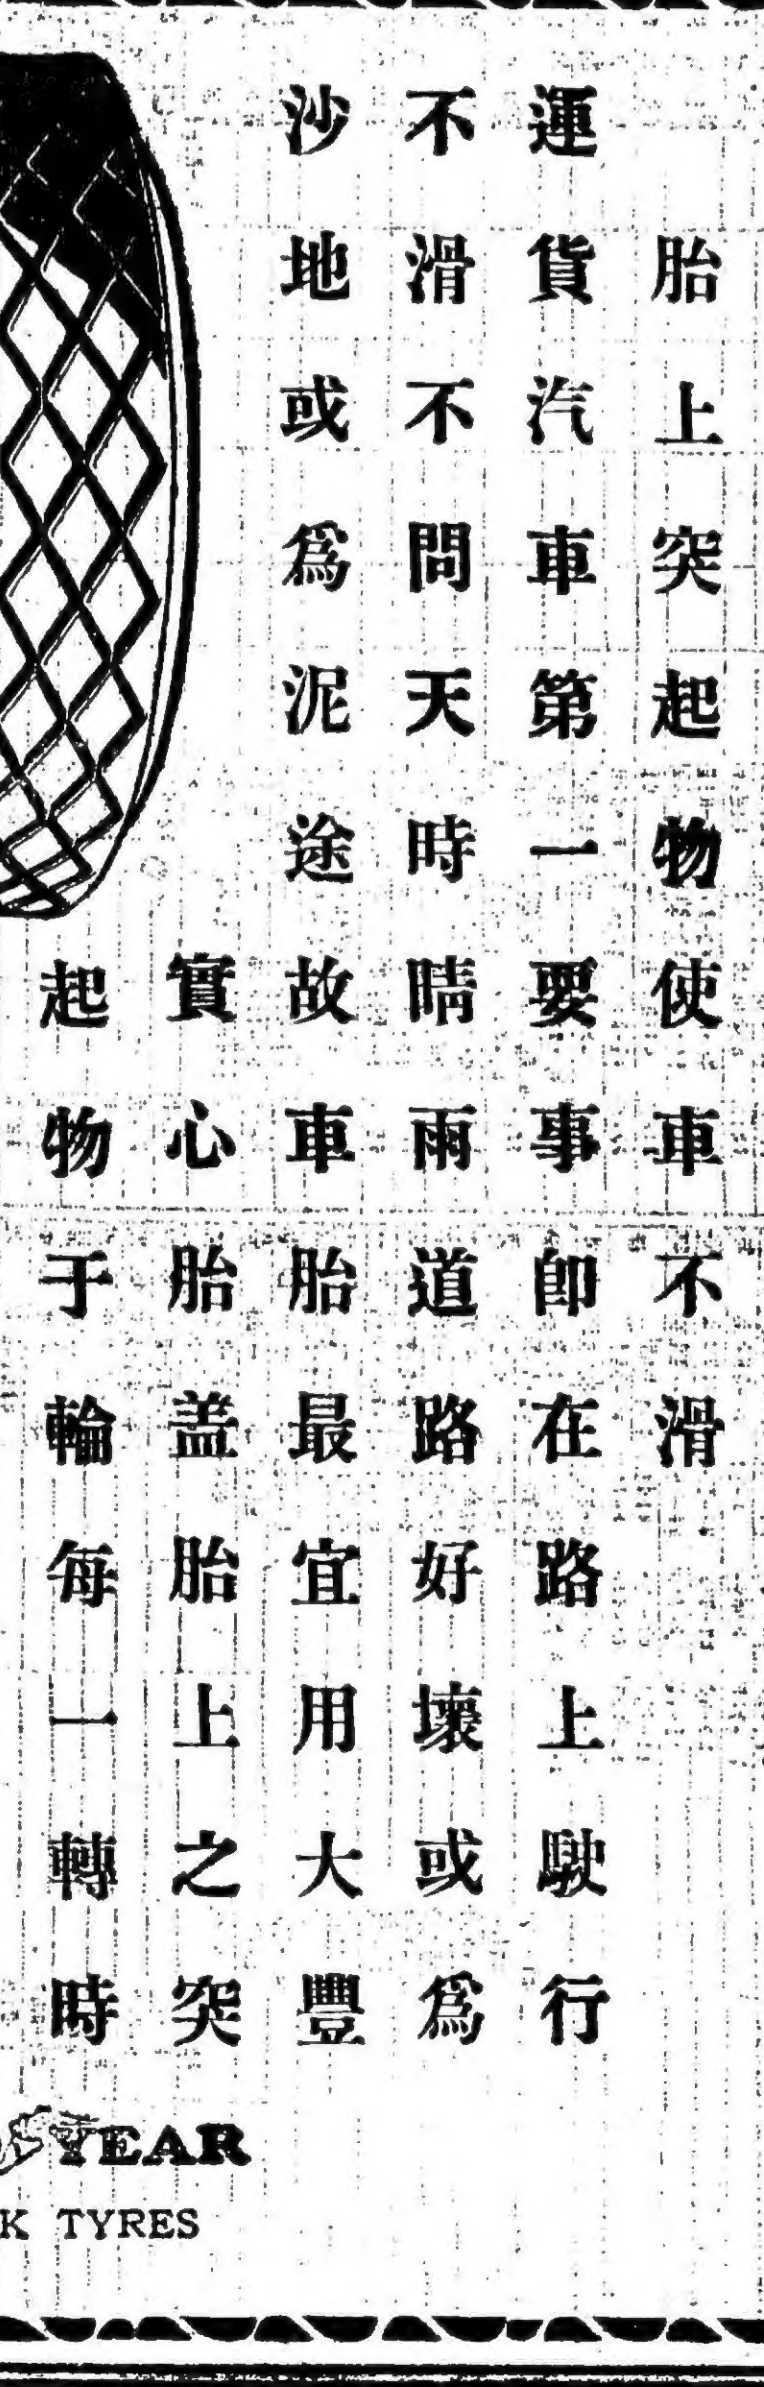 胎上突起物使車不滑
運貨汽車第一要事卽在路上駛行
不滑不問天時晴雨道路好壞或爲
沙地或爲泥途故車胎最宜用大豐
實心胎盖胎上之突
起物于輪每一轉時
YEAR
K TYRES